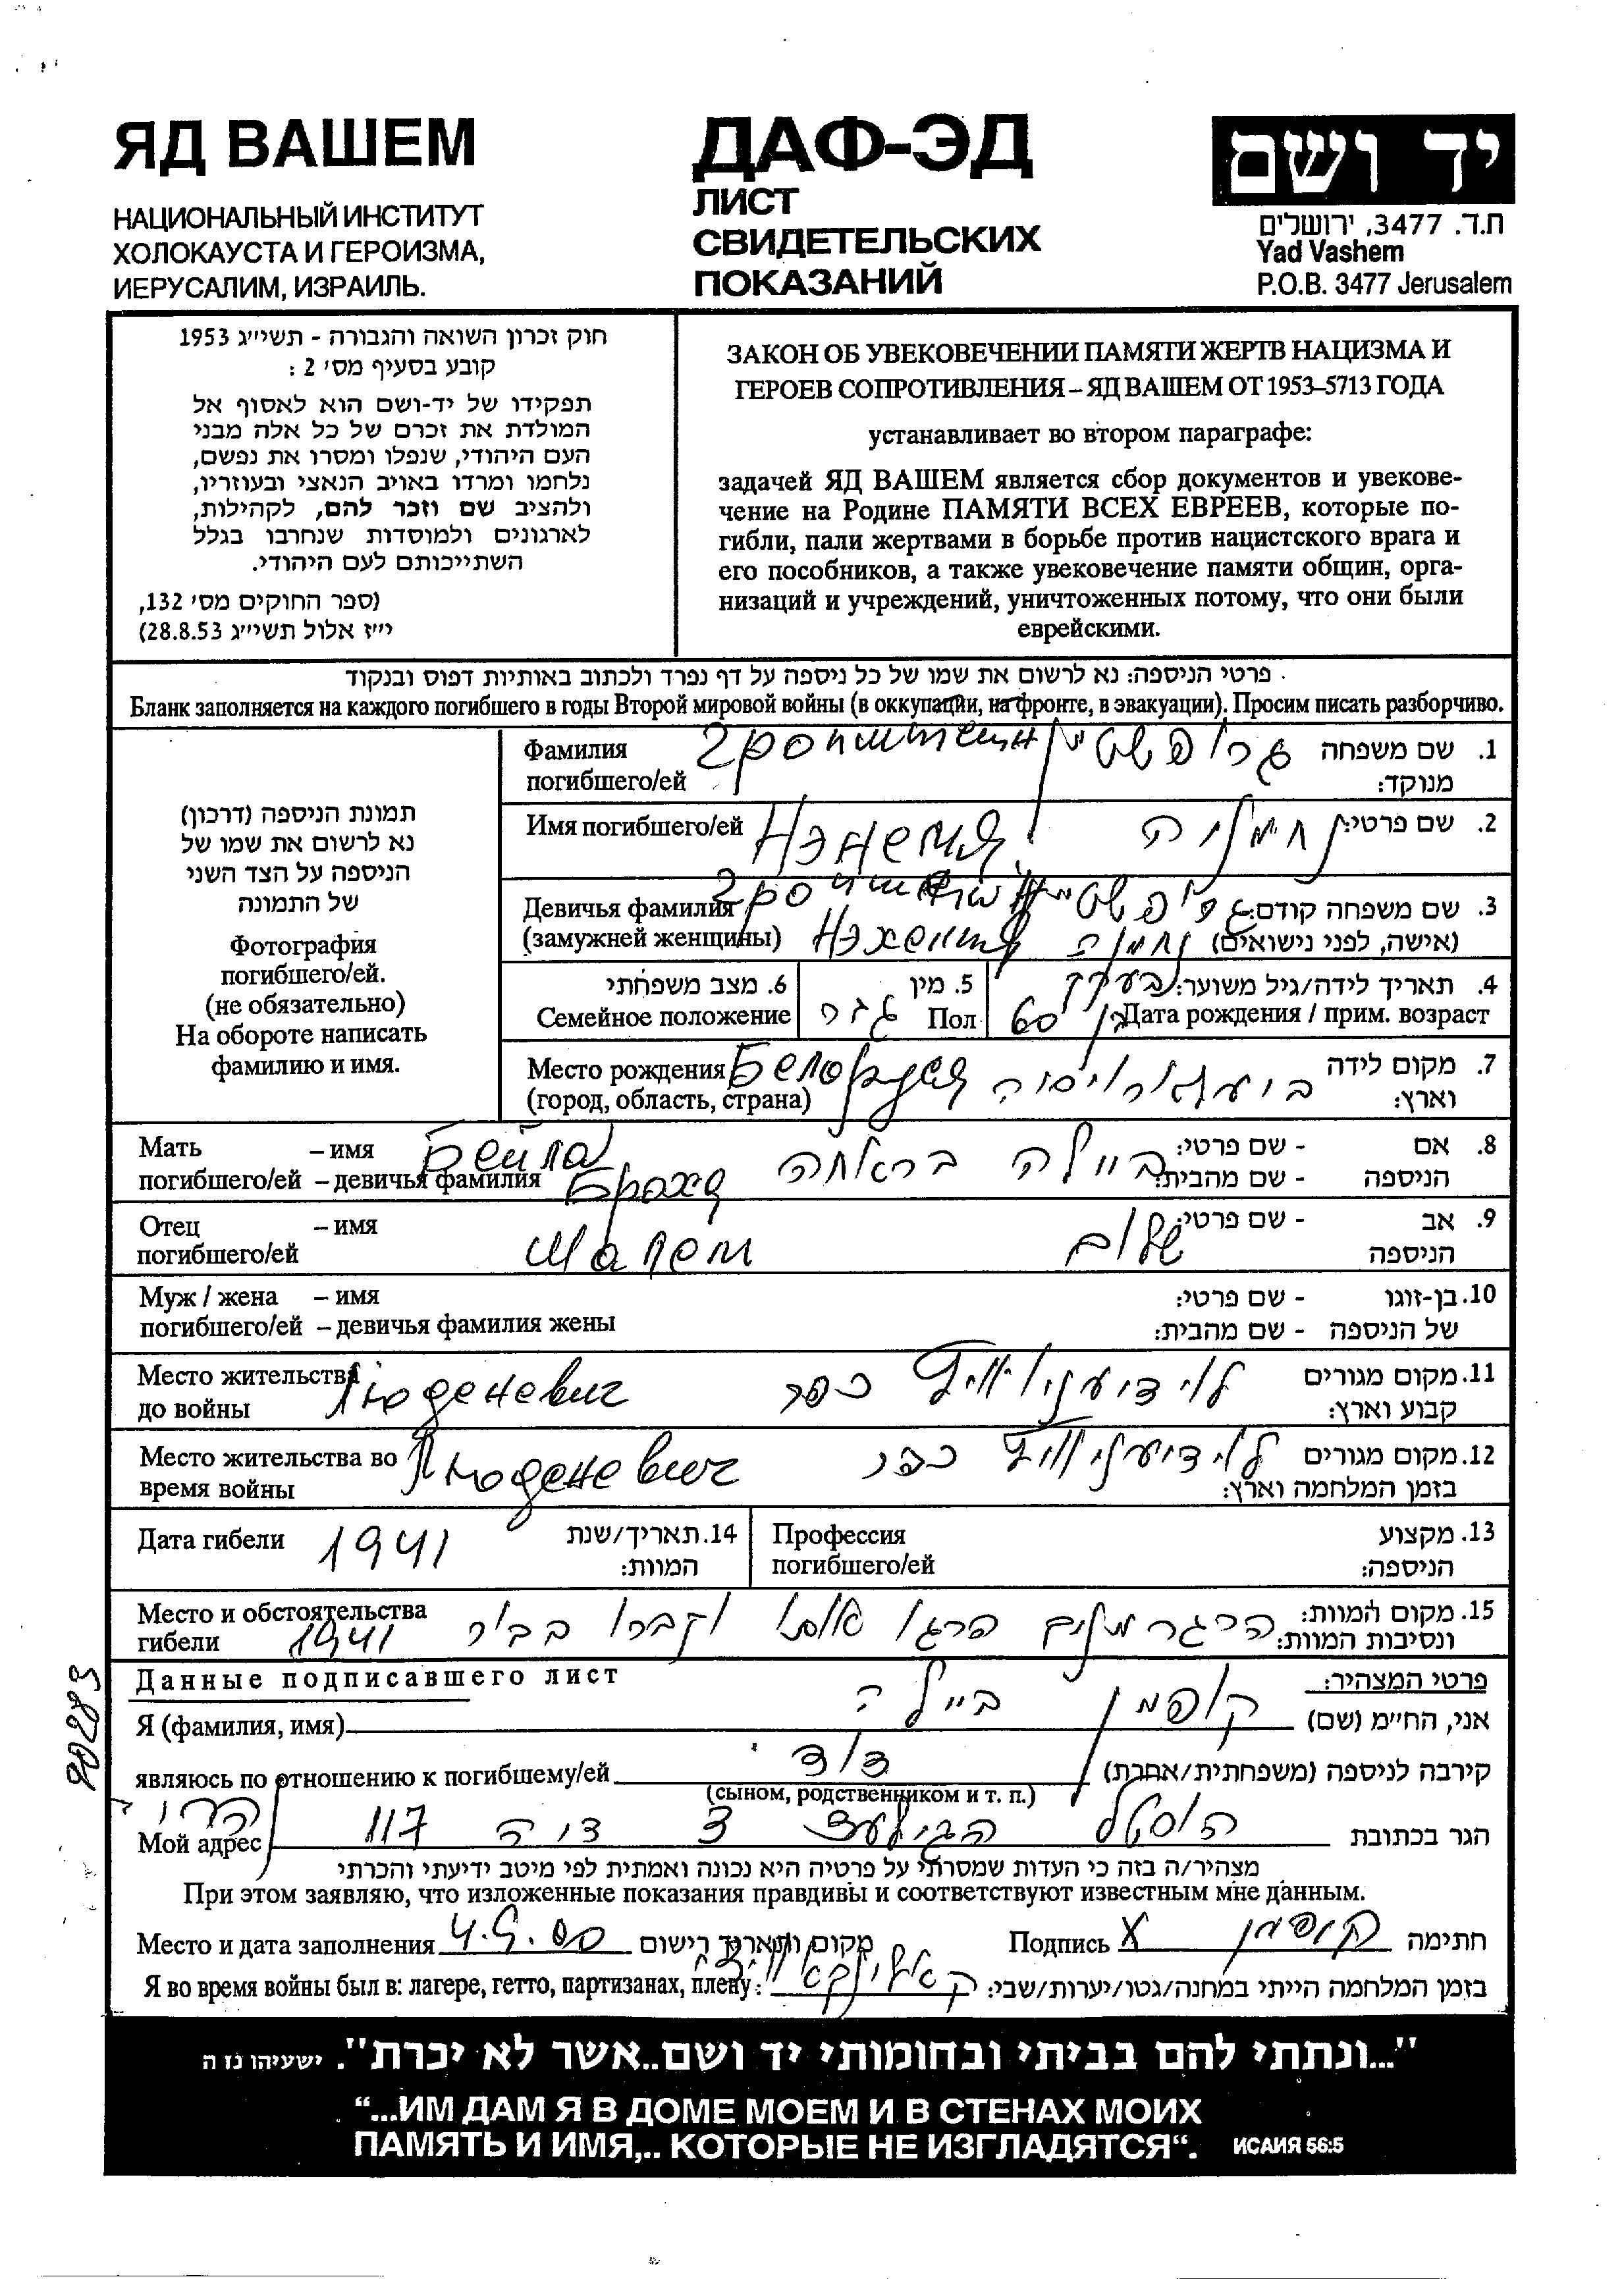 ЯД ВАШЕМ
НАЦИОНАЛЬНЫЙ ИНСТИТУТ
ХОЛОКАУСТА И ГЕРОИЗМА,
ИЕРУСАЛИМ, ИЗРАИЛЬ.
ДАФ-ЭД
ЛИСТ
СВИДЕТЕЛЬСКИХ
ПОКАЗАНИЙ
יד ושם
ת.ד. 3477, ירושלים
Yad Vashem
P.O.B. 3477 Jerusalem
חוק זכרון השואה והגבורה - תשי״ג 1953
קובע בסעיף מס׳ 2 :
תפקידו של יד-ושם הוא לאסוף אל
המולדת את זכרם של כל אלה מבני
העם היהודי, שנפלו ומסרו את נפשם,
נלחמו ומרדו באויב הנאצי ובעוזריו,
ולהציב שם וזכר להם, לקהילות,
לארגונים ולמוסדות שנחרבו בגלל
השתייכותם לעם היהודי.
(ספר החוקים מס׳ 132,
י״ז אלול תשי״ג 28.8.53)
ЗАКОН ОБ УВЕКОВЕЧЕНИИ ПАМЯТИ ЖЕРТВ НАЦИЗМА И
ГЕРОЕВ СОПРОТИВЛЕНИЯ – ЯД ВАШЕМ ОТ 1953–5713 ГОДА
устанавливает во втором параграфе:
задачей ЯД ВАШЕМ является сбор документов и увекове-
чение на Родине ПАМЯТИ ВСЕХ ЕВРЕЕВ, которые по-
гибли, пали жертвами в борьбе против нацистского врага и
его пособников, а также увековечение памяти общин, орга-
низаций и учреждений, уничтоженных потому, что они были
еврейскими.
פרטי הניספה: נא לרשום את שמו של כל ניספה על דף נפרד ולכתוב באותיות דפוס ובנקוד
Бланк заполняется на каждого погибшего в годы Второй мировой войны (в оккупации, на фронте, в эвакуации). Просим писать разборчиво.
תמונת הניספה (דרכון)
נא לרשום את שמו של
הניספה על הצד השני
של התמונה
Фотография
погибшего/ей.
(не обязательно)
На обороте написать
фамилию и имя.
Фамилия Гропштейн גרופשטיין 1. שם משפחה
погибшего/ей מנוקד:
Имя погибшего/ей נחמיה 2. שם פרטי:
Девичья фамилия 3. שם משפחה קודם:
(замужней женщины) נחמיה (אישה, לפני נישואים)
6. מצב משפחתי 5. מין 4. תאריך לידה/גיל משוער: בערך
Семейное положение גבר Пол בן 60 Дата рождения / прим. возраст
Место рождения 7. מקום לידה
(город, область, страна) וארץ:
Мать – имя Бейла ביילה בראחה 8. אם - שם פרטי:
погибшего/ей – девичья фамилия Броха הניספה - שם מהבית:
Отец – имя שלום 9. אב - שם פרטי:
погибшего/ей Шалом הניספה
Муж / жена – имя 10. בן-זוגו - שם פרטי:
погибшего/ей – девичья фамилия жены של הניספה - שם מהבית:
Место жительства Люденевич כפר 11. מקום מגורים
до войны קבוע וארץ:
Место жительства во Люденевич כפר 12. מקום מגורים
время войны בזמן המלחמה וארץ:
Дата гибели 1941 14. תאריך/שנת
המוות:
Профессия 13. מקצוע
погибшего/ей הניספה:
Место и обстоятельства 15. מקום המוות:
гибели 1941 הרגו אותו וקברו בבור ונסיבות המוות:
90283
Данные подписавшего лист פרטי המצהיר:
Я (фамилия, имя) קופמן ביילה אני, החי״מ (שם)
являюсь по отношению к погибшему/ей דוד קירבה לניספה (משפחתית/אחרת)
(сыном, родственником и т. п.)
Мой адрес הוסטל 117 הגר בכתובת
מצהיר/ה בזה כי העדות שמסרתי על פרטיה היא נכונה ואמתית לפי מיטב ידיעתי והכרתי
При этом заявляю, что изложенные показания правдивы и соответствуют известным мне данным.
Место и дата заполнения 4.5.00 מקום ותאריך רישום Подпись X קופמן חתימה
Я во время войны был в: лагере, гетто, партизанах, плену: בזמן המלחמה הייתי במחנה/גטו/יערות/שבי:
״...ונתתי להם בביתי ובחומותי יד ושם..אשר לא יכרת״. ישעיהו נז ה
“...ИМ ДАМ Я В ДОМЕ МОЕМ И В СТЕНАХ МОИХ
ПАМЯТЬ И ИМЯ,.. КОТОРЫЕ НЕ ИЗГЛАДЯТСЯ“. ИСАИЯ 56:5